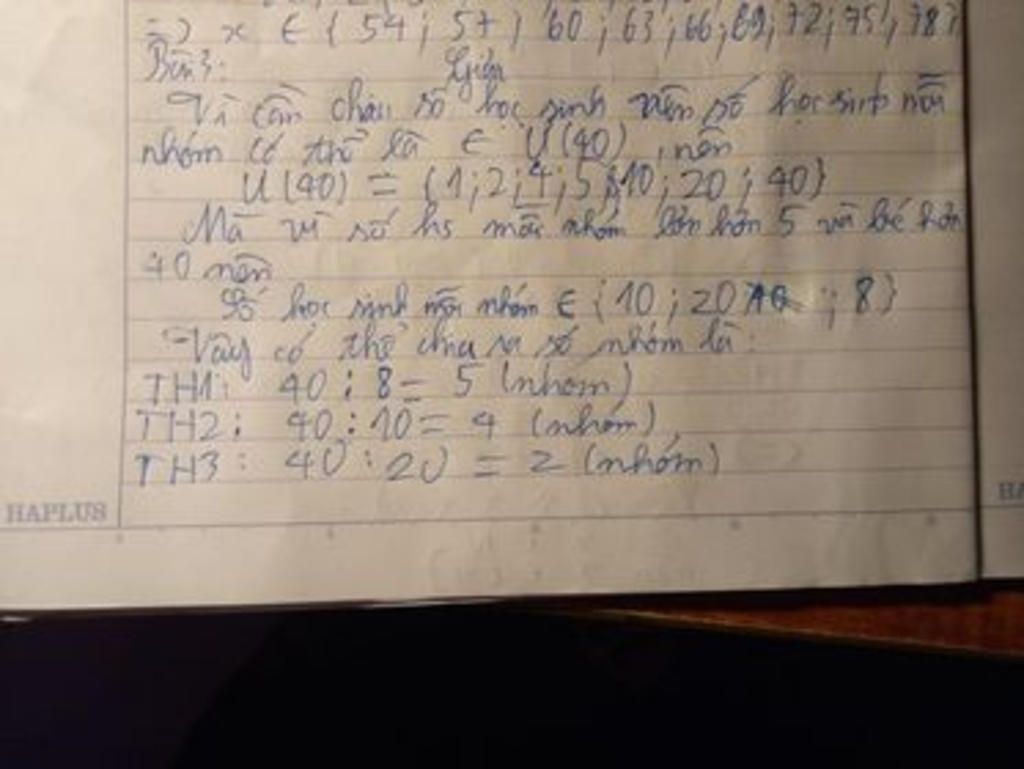 => x ∈ { 54 ; 57 ; 60 ; 63 ; 66 ; 69 ; 72 ; 75 ; 78 }
Bài 3: Giải
Vì cần chia số học sinh nên số học sinh mỗi
nhóm có thể là ∈ Ư(40), nên
Ư(40) = {1; 2; 4; 5; 10; 20; 40}
Mà vì số hs mỗi nhóm lớn hơn 5 và bé hơn
40 nên
Số học sinh mỗi nhóm ∈ {10 ; 20 ; 8}
Vậy có thể chia ra số nhóm là:
TH1: 40 : 8 = 5 (nhóm)
TH2: 40 : 10 = 4 (nhóm)
TH3: 40 : 20 = 2 (nhóm)
HAPLUS
HA